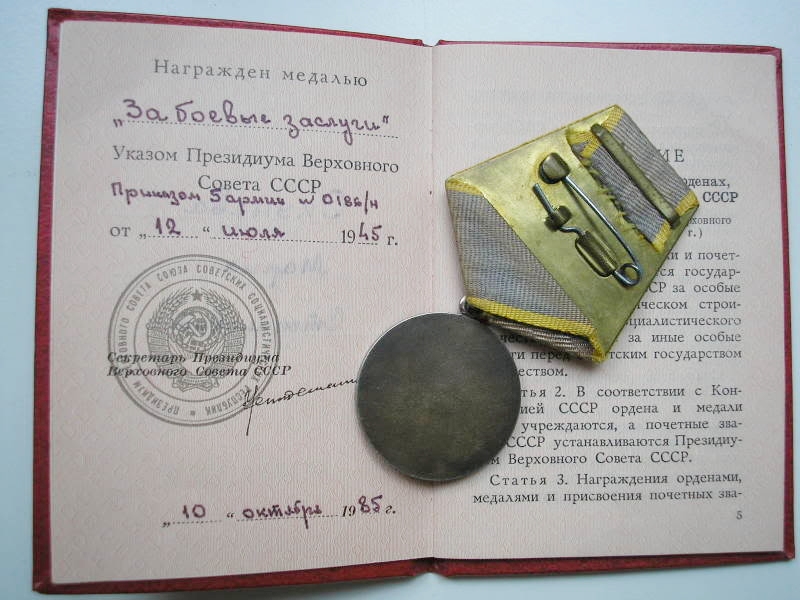 Награжден медалью
„За боевые заслуги"
Указом Президиума Верховного
Совета СССР
Приказом 5 армии № 0186/н
от „12" июля 1945 г.
ПРЕЗИДИУМ ВЕРХОВНОГО СОВЕТА СОЮЗА СОВЕТСКИХ СОЦИАЛИСТИЧЕСКИХ РЕСПУБЛИК
Секретарь Президиума
Верховного Совета СССР
„10" октября 1985 г.
ИЕ
рденах,
СССР
рховного
г.)
и и почет-
ся государ-
СР за особые
ческом строи-
циалистического
за иные особые
ти перед Советским государством
еством.
тья 2. В соответствии с Кон-
цией СССР ордена и медали
учреждаются, а почетные зва-
СССР устанавливаются Президиу-
м Верховного Совета СССР.
Статья 3. Награждения орденами,
медалями и присвоения почетных зва-
5